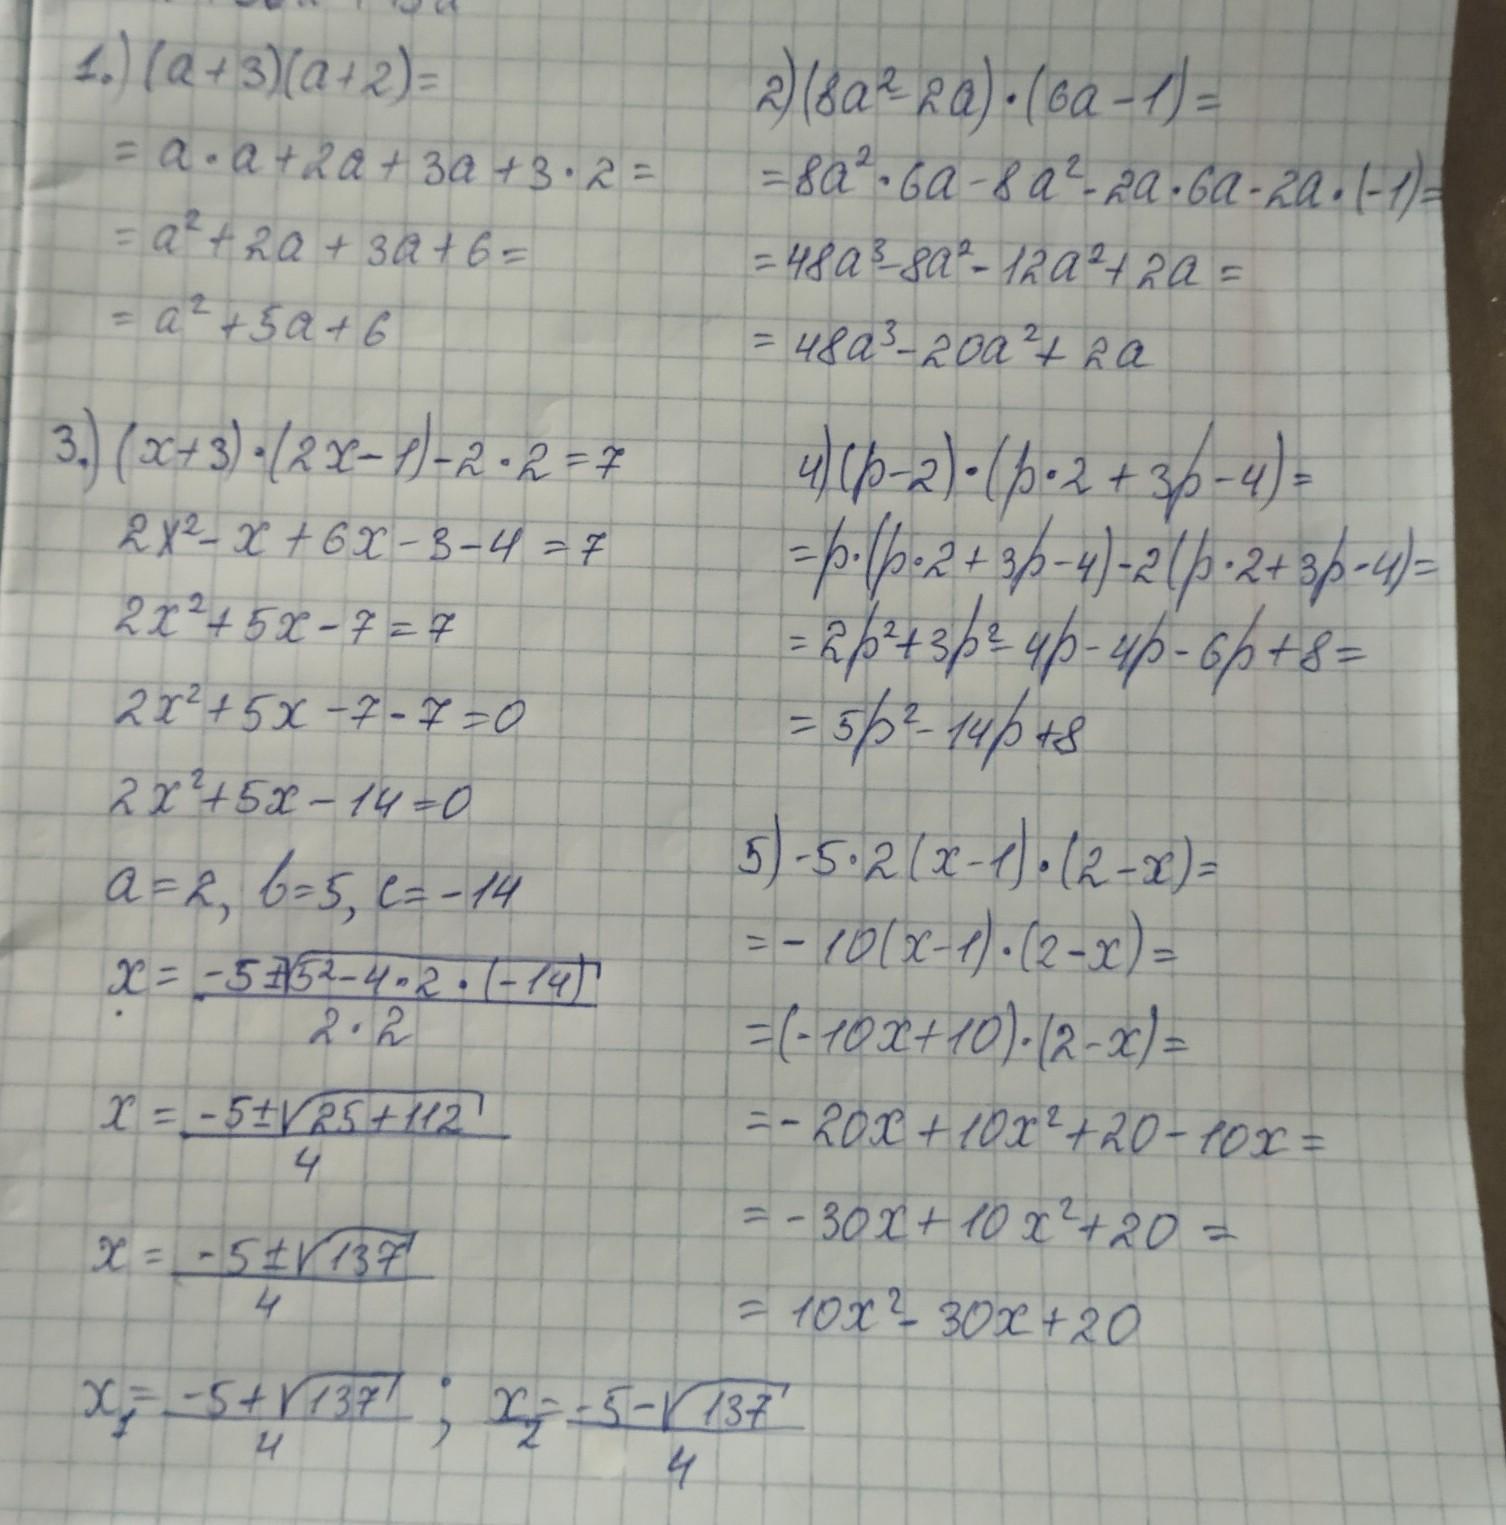 1.) (a+3)(a+2)=
= a·a+2a+3a+3·2=
= a²+2a+3a+6=
= a²+5a+6
2) (8a²-2a)·(6a-1)=
=8a²·6a-8a²-2a·6a-2a·(-1)=
=48a³-8a²-12a²+2a=
= 48a³-20a²+2a
3.) (x+3)·(2x-1)-2·2=7
2x²-x+6x-3-4=7
2x²+5x-7=7
2x²+5x-7-7=0
2x²+5x-14=0
a=2, b=5, c=-14
x = (-5±√(5²-4·2·(-14)))/(2·2)
x = (-5±√(25+112))/4
x = (-5±√137)/4
x₁=(-5+√137)/4 ; x₂=(-5-√137)/4
4) (p-2)·(p·2+3p-4)=
=p·(p·2+3p-4)-2(p·2+3p-4)=
=2p²+3p²-4p-4p-6p+8=
= 5p²-14p+8
5) -5·2(x-1)·(2-x)=
=-10(x-1)·(2-x)=
=(-10x+10)·(2-x)=
=-20x+10x²+20-10x=
=-30x+10x²+20=
= 10x²-30x+20